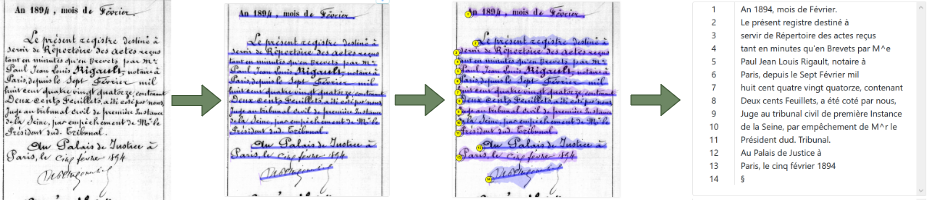 An 1894, mois de Février.
Le présent registre destiné à
servir de Répertoire des actes reçus
tant en minutes qu'en Brevets par Me
Paul Jean Louis Rigault, notaire à
Paris, depuis le Sept Février mil
huit cent quatre vingt quatorze, contenant
Deux cents Feuillets, a été coté par nous,
Juge au tribunal civil de première Instance
de la Seine, par empêchement de Mr le
Président dud. Tribunal.
Au Palais de Justice à
Paris, le cinq février 1894
An 1894, mois de Février.
Le présent registre destiné à
servir de Répertoire des actes reçus
tant en minutes qu'en Brevets par Me
Paul Jean Louis Rigault, notaire à
Paris, depuis le Sept Février mil
huit cent quatre vingt quatorze, contenant
Deux cents Feuillets, a été coté par nous,
Juge au tribunal civil de première Instance
de la Seine, par empêchement de Mr le
Président dud. Tribunal.
Au Palais de Justice à
Paris, le cinq février 1894
An 1894, mois de Février.
Le présent registre destiné à
servir de Répertoire des actes reçus
tant en minutes qu'en Brevets par Me
Paul Jean Louis Rigault, notaire à
Paris, depuis le Sept Février mil
huit cent quatre vingt quatorze, contenant
Deux cents Feuillets, a été coté par nous,
Juge au tribunal civil de première Instance
de la Seine, par empêchement de Mr le
Président dud. Tribunal.
Au Palais de Justice à
Paris, le cinq février 1894
1 An 1894, mois de Février.
2 Le présent registre destiné à
3 servir de Répertoire des actes reçus
4 tant en minutes qu'en Brevets par M^e
5 Paul Jean Louis Rigault, notaire à
6 Paris, depuis le Sept Février mil
7 huit cent quatre vingt quatorze, contenant
8 Deux cents Feuillets, a été coté par nous,
9 Juge au tribunal civil de première Instance
10 de la Seine, par empêchement de M^r le
11 Président dud. Tribunal.
12 Au Palais de Justice à
13 Paris, le cinq février 1894
14 §